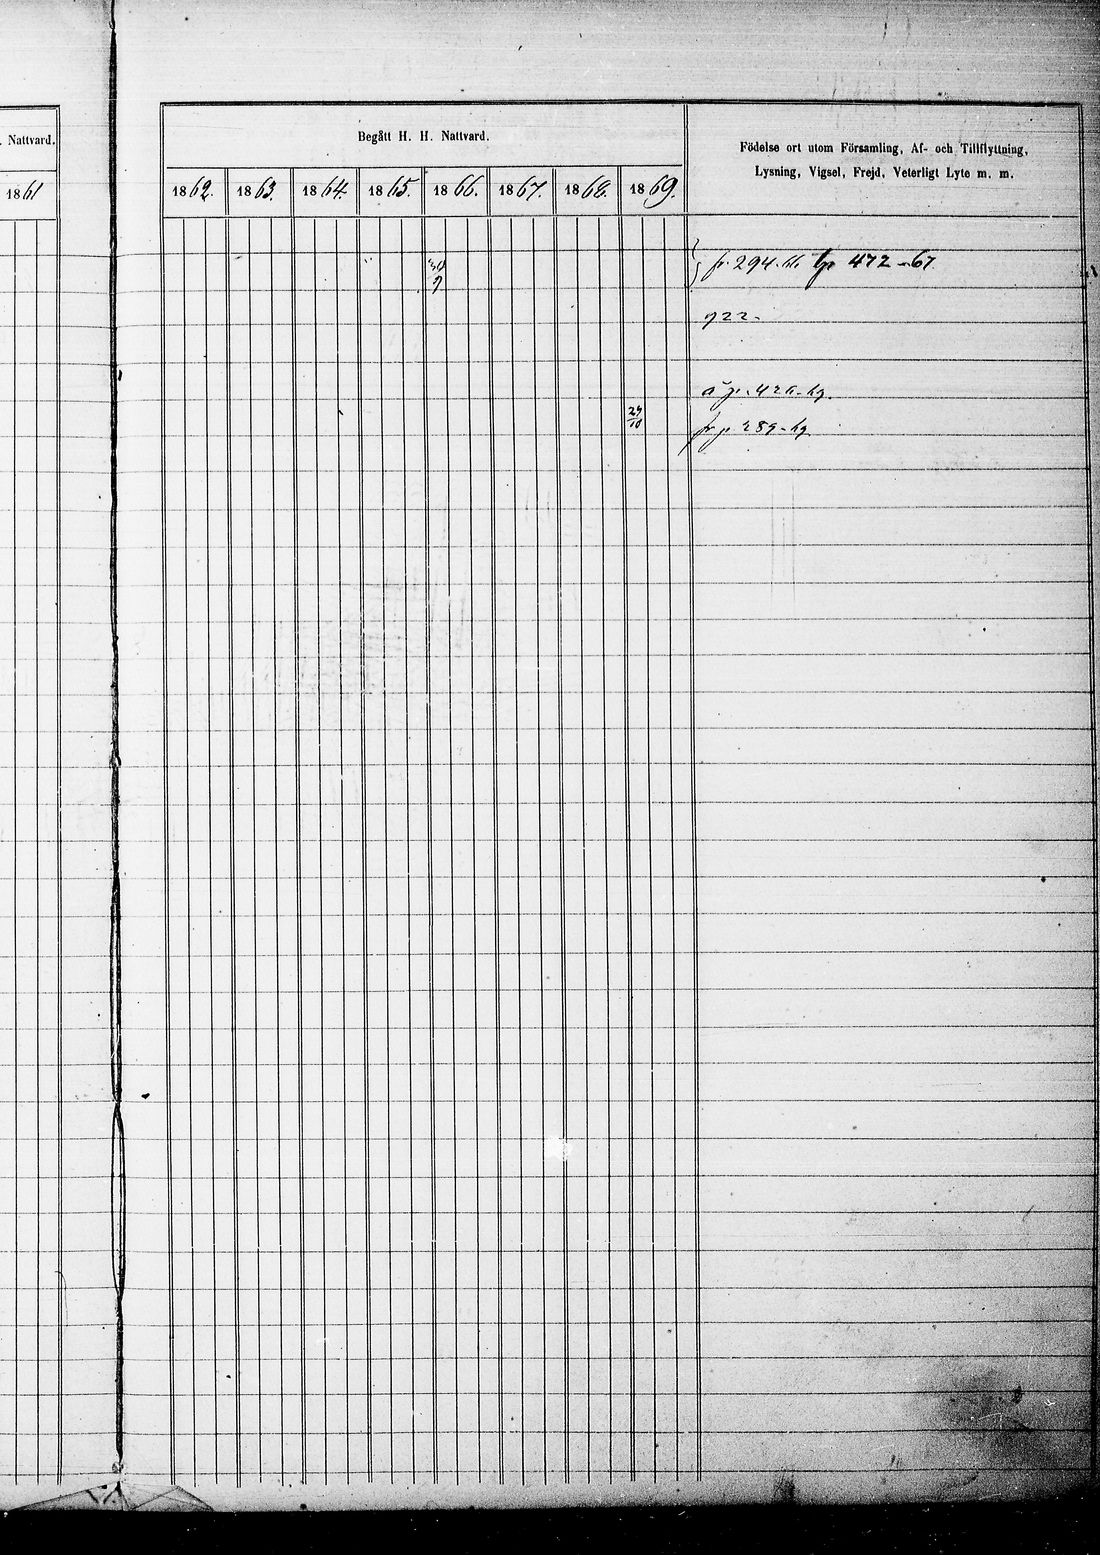 . Nattvard.
1861
Begått H. H. Nattvard.
1862. 1863. 1864. 1865. 1866. 1867. 1868. 1869.
Födelse ort utom Församling, Af- och Tillflyttning,
Lysning, Vigsel, Frejd, Veterligt Lyte m. m.
fr. 294 472 - 67
24/10
fr p. 289